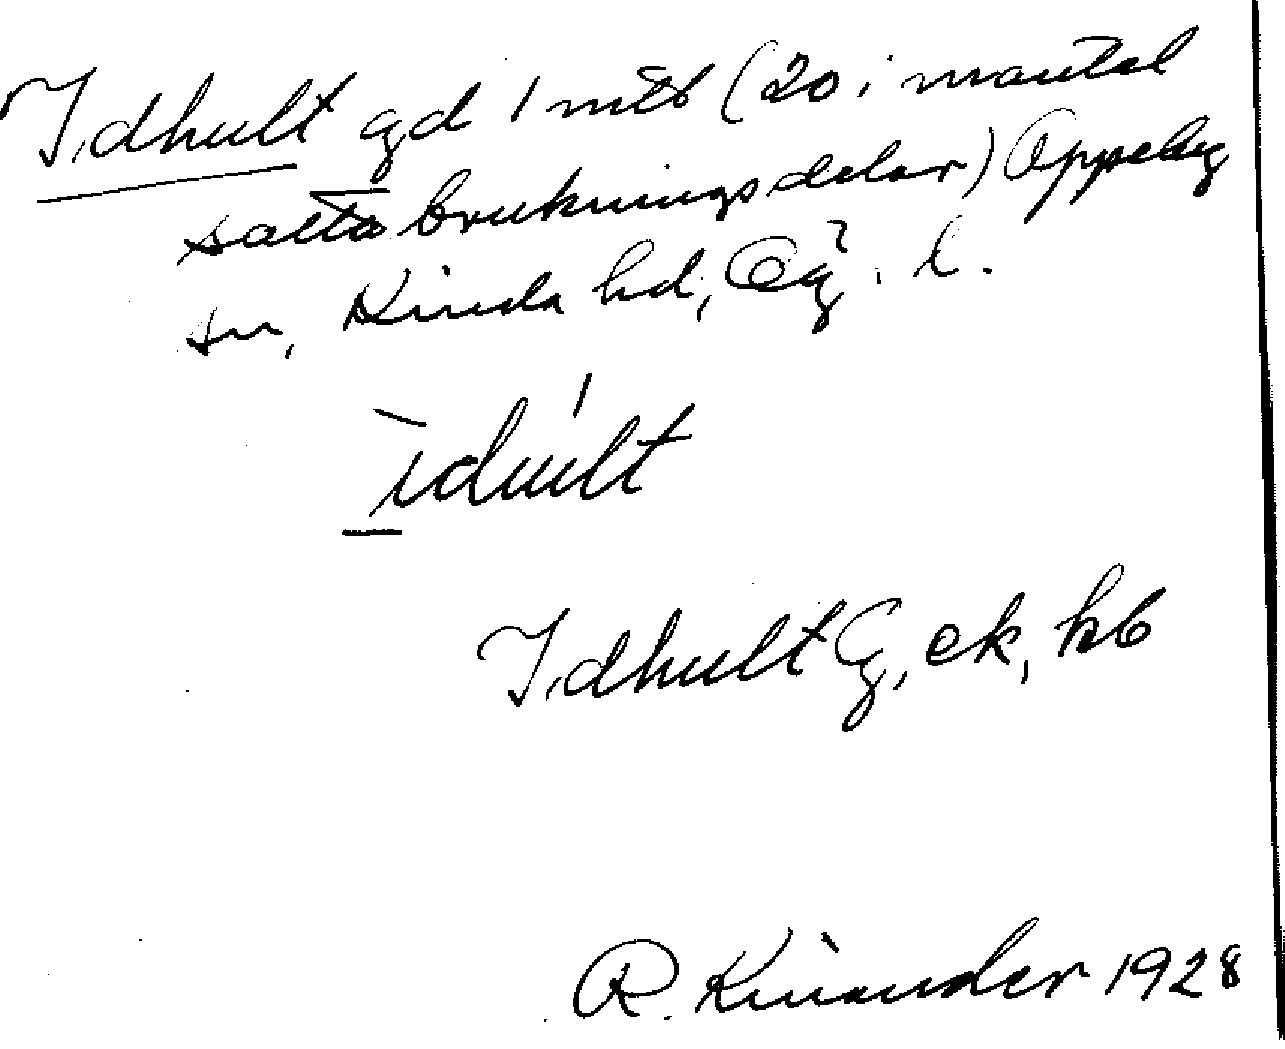 Idhult gd 1 mtl (20 i mantal
satta brukningsdelar) Oppeby
sn, Kinda hd, Ög. l.
ìdhúlt
Idhult G, ek, kb
R. Kinander 1928